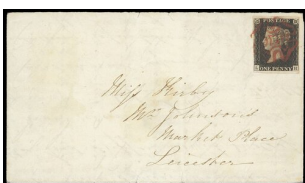 POSTAGE
ONE PENNY
Miss Kirby
Mrs Johnsons
Market Place
Leicester